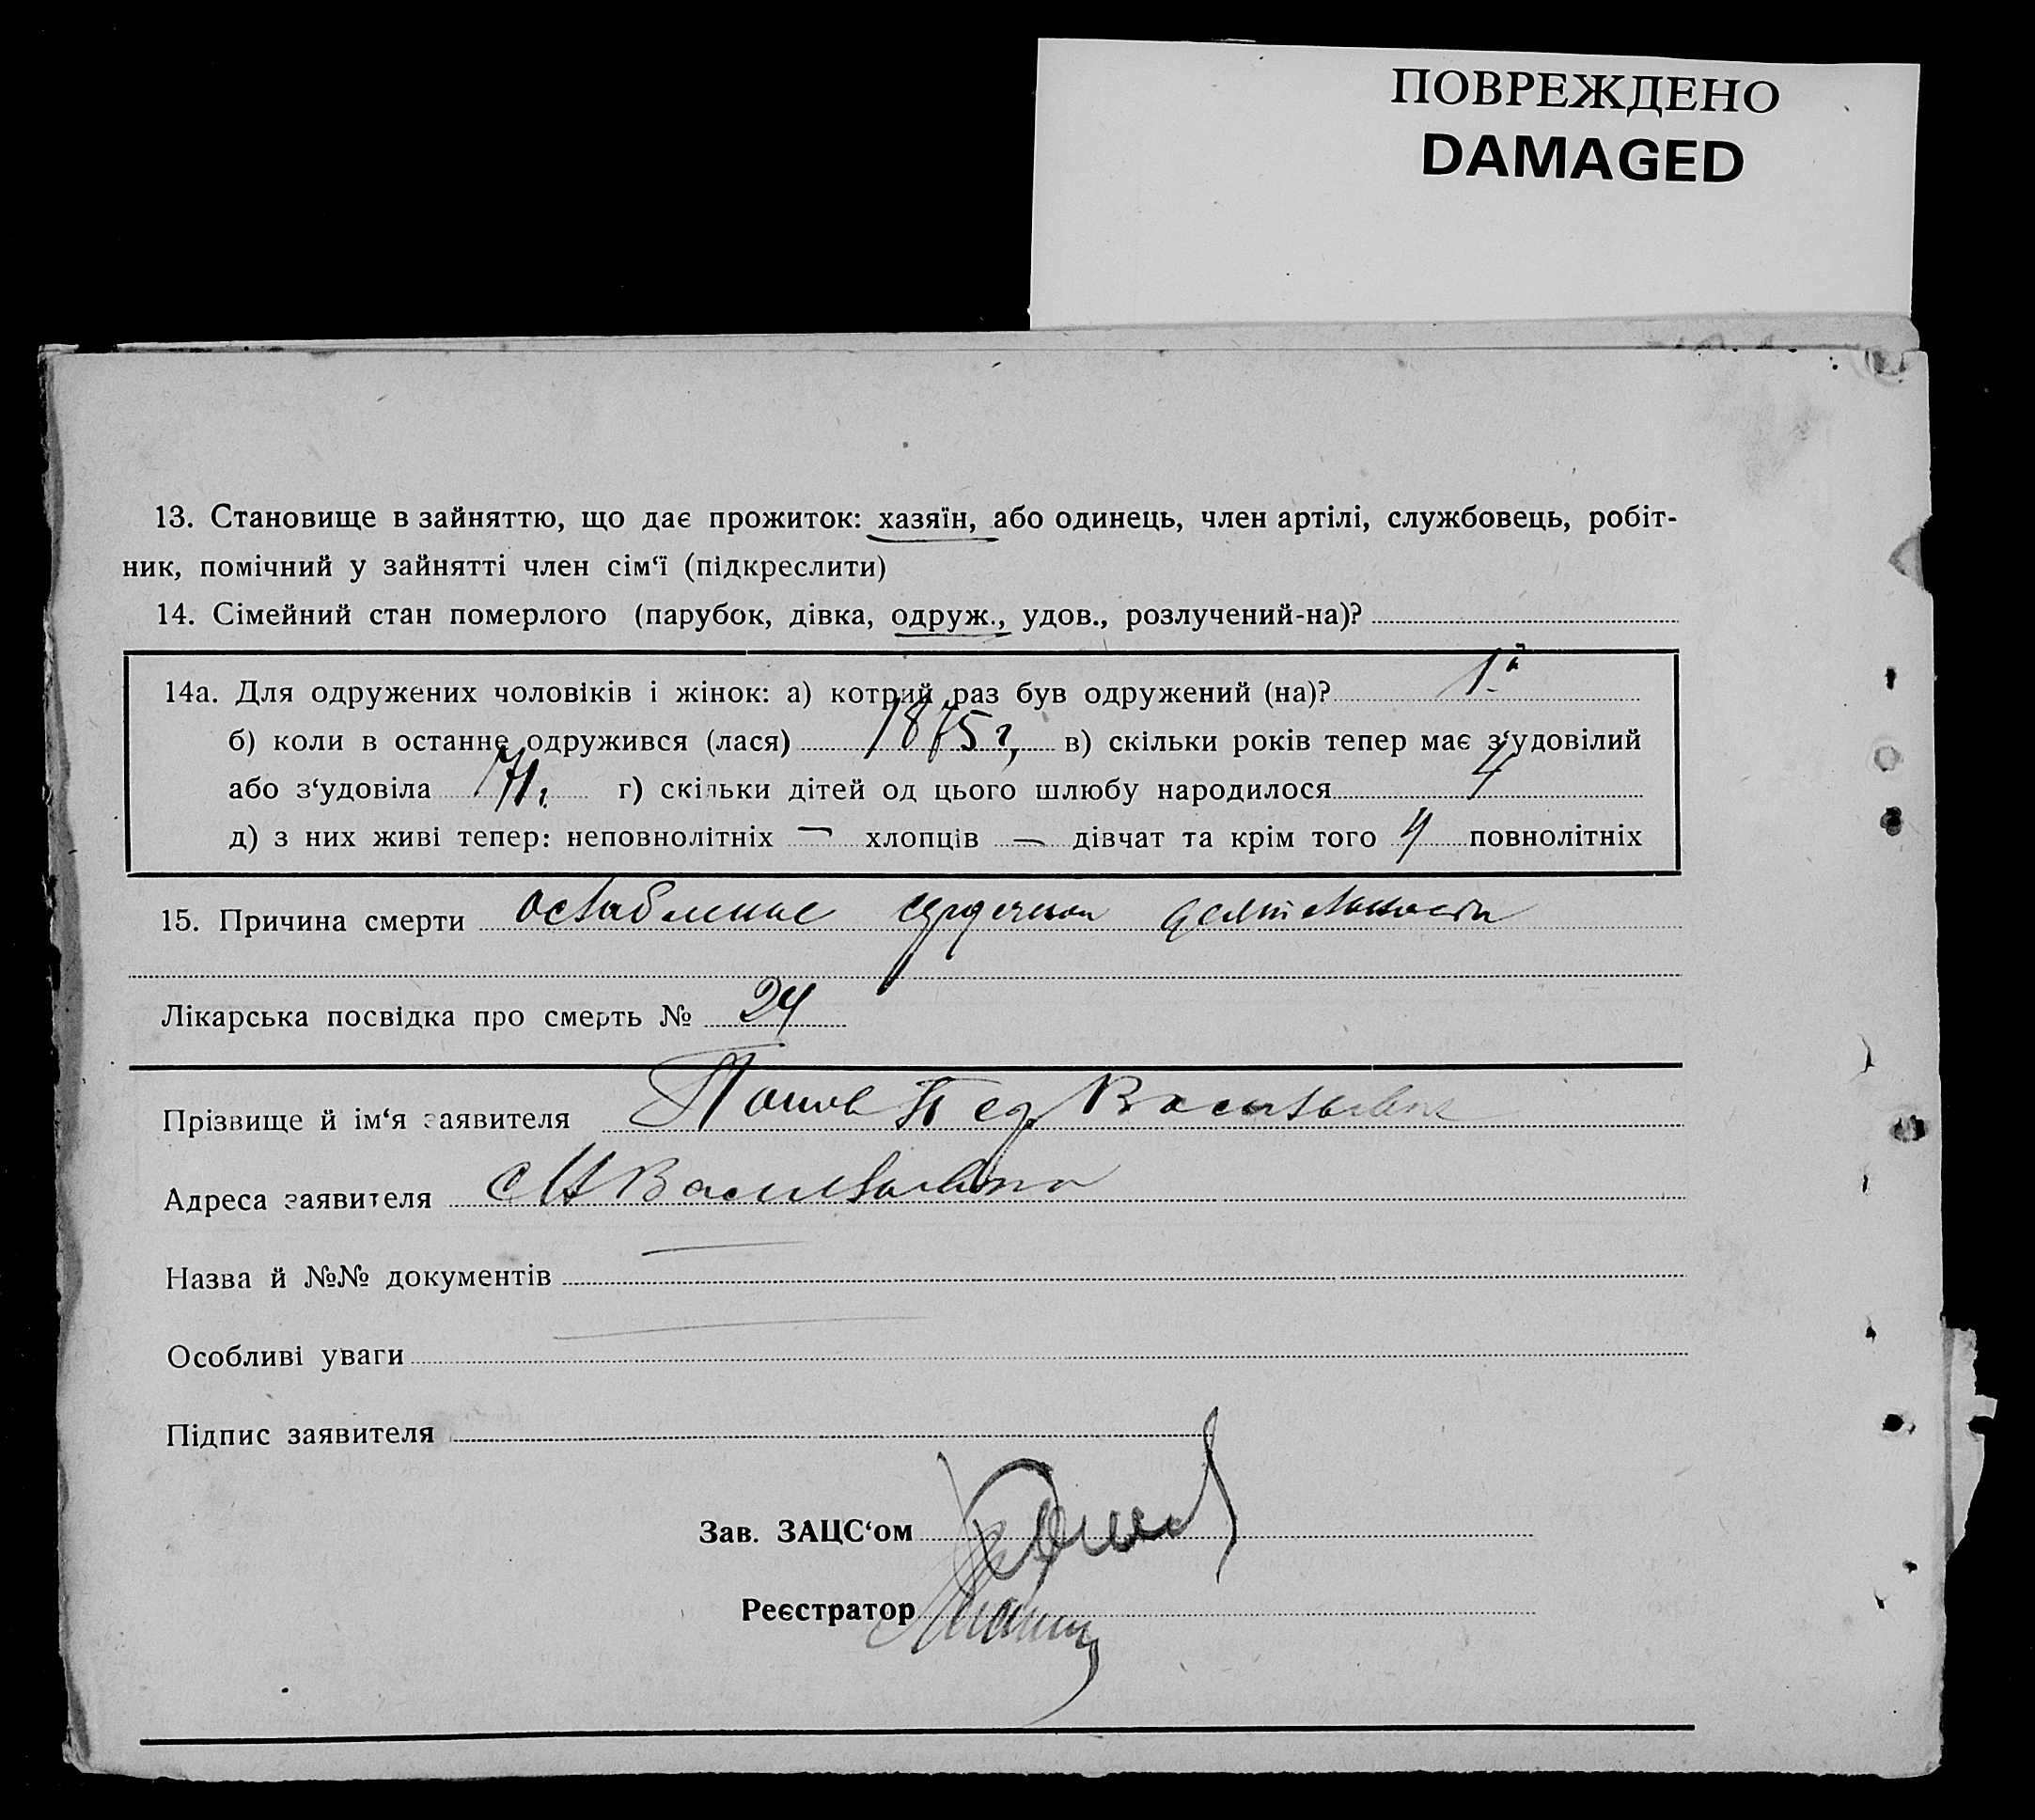 ПОВРЕЖДЕНО
DAMAGED
13. Становище в зайняттю, що дає прожиток: хазяїн, або одинець, член артілі, службовець, робіт-
ник, помічний у зайнятті член сім‘ї (підкреслити)
14. Сімейний стан померлого (парубок, дівка, одруж., удов., розлучений-на)?
14а. Для одружених чоловіків і жінок: а) котрий раз був одружений (на)? 1й
б) коли в останнє одружився (лася) 1875 г, в) скільки років тепер має з‘удовілий
або з‘удовіла 71, г) скільки дітей од цього шлюбу народилося 4
д) з них живі тепер: неповнолітніх — хлопців — дівчат та крім того 4 повнолітніх
15. Причина смерти ослабление сердечной деятельности
Лікарська посвідка про смерть № 24
Прізвище й ім‘я заявителя Попов Васильевич
Адреса заявителя с Н Васильевка
Назва й №№ документів —
Особливі уваги —
Підпис заявителя
Зав. ЗАЦС‘ом
Реєстратор